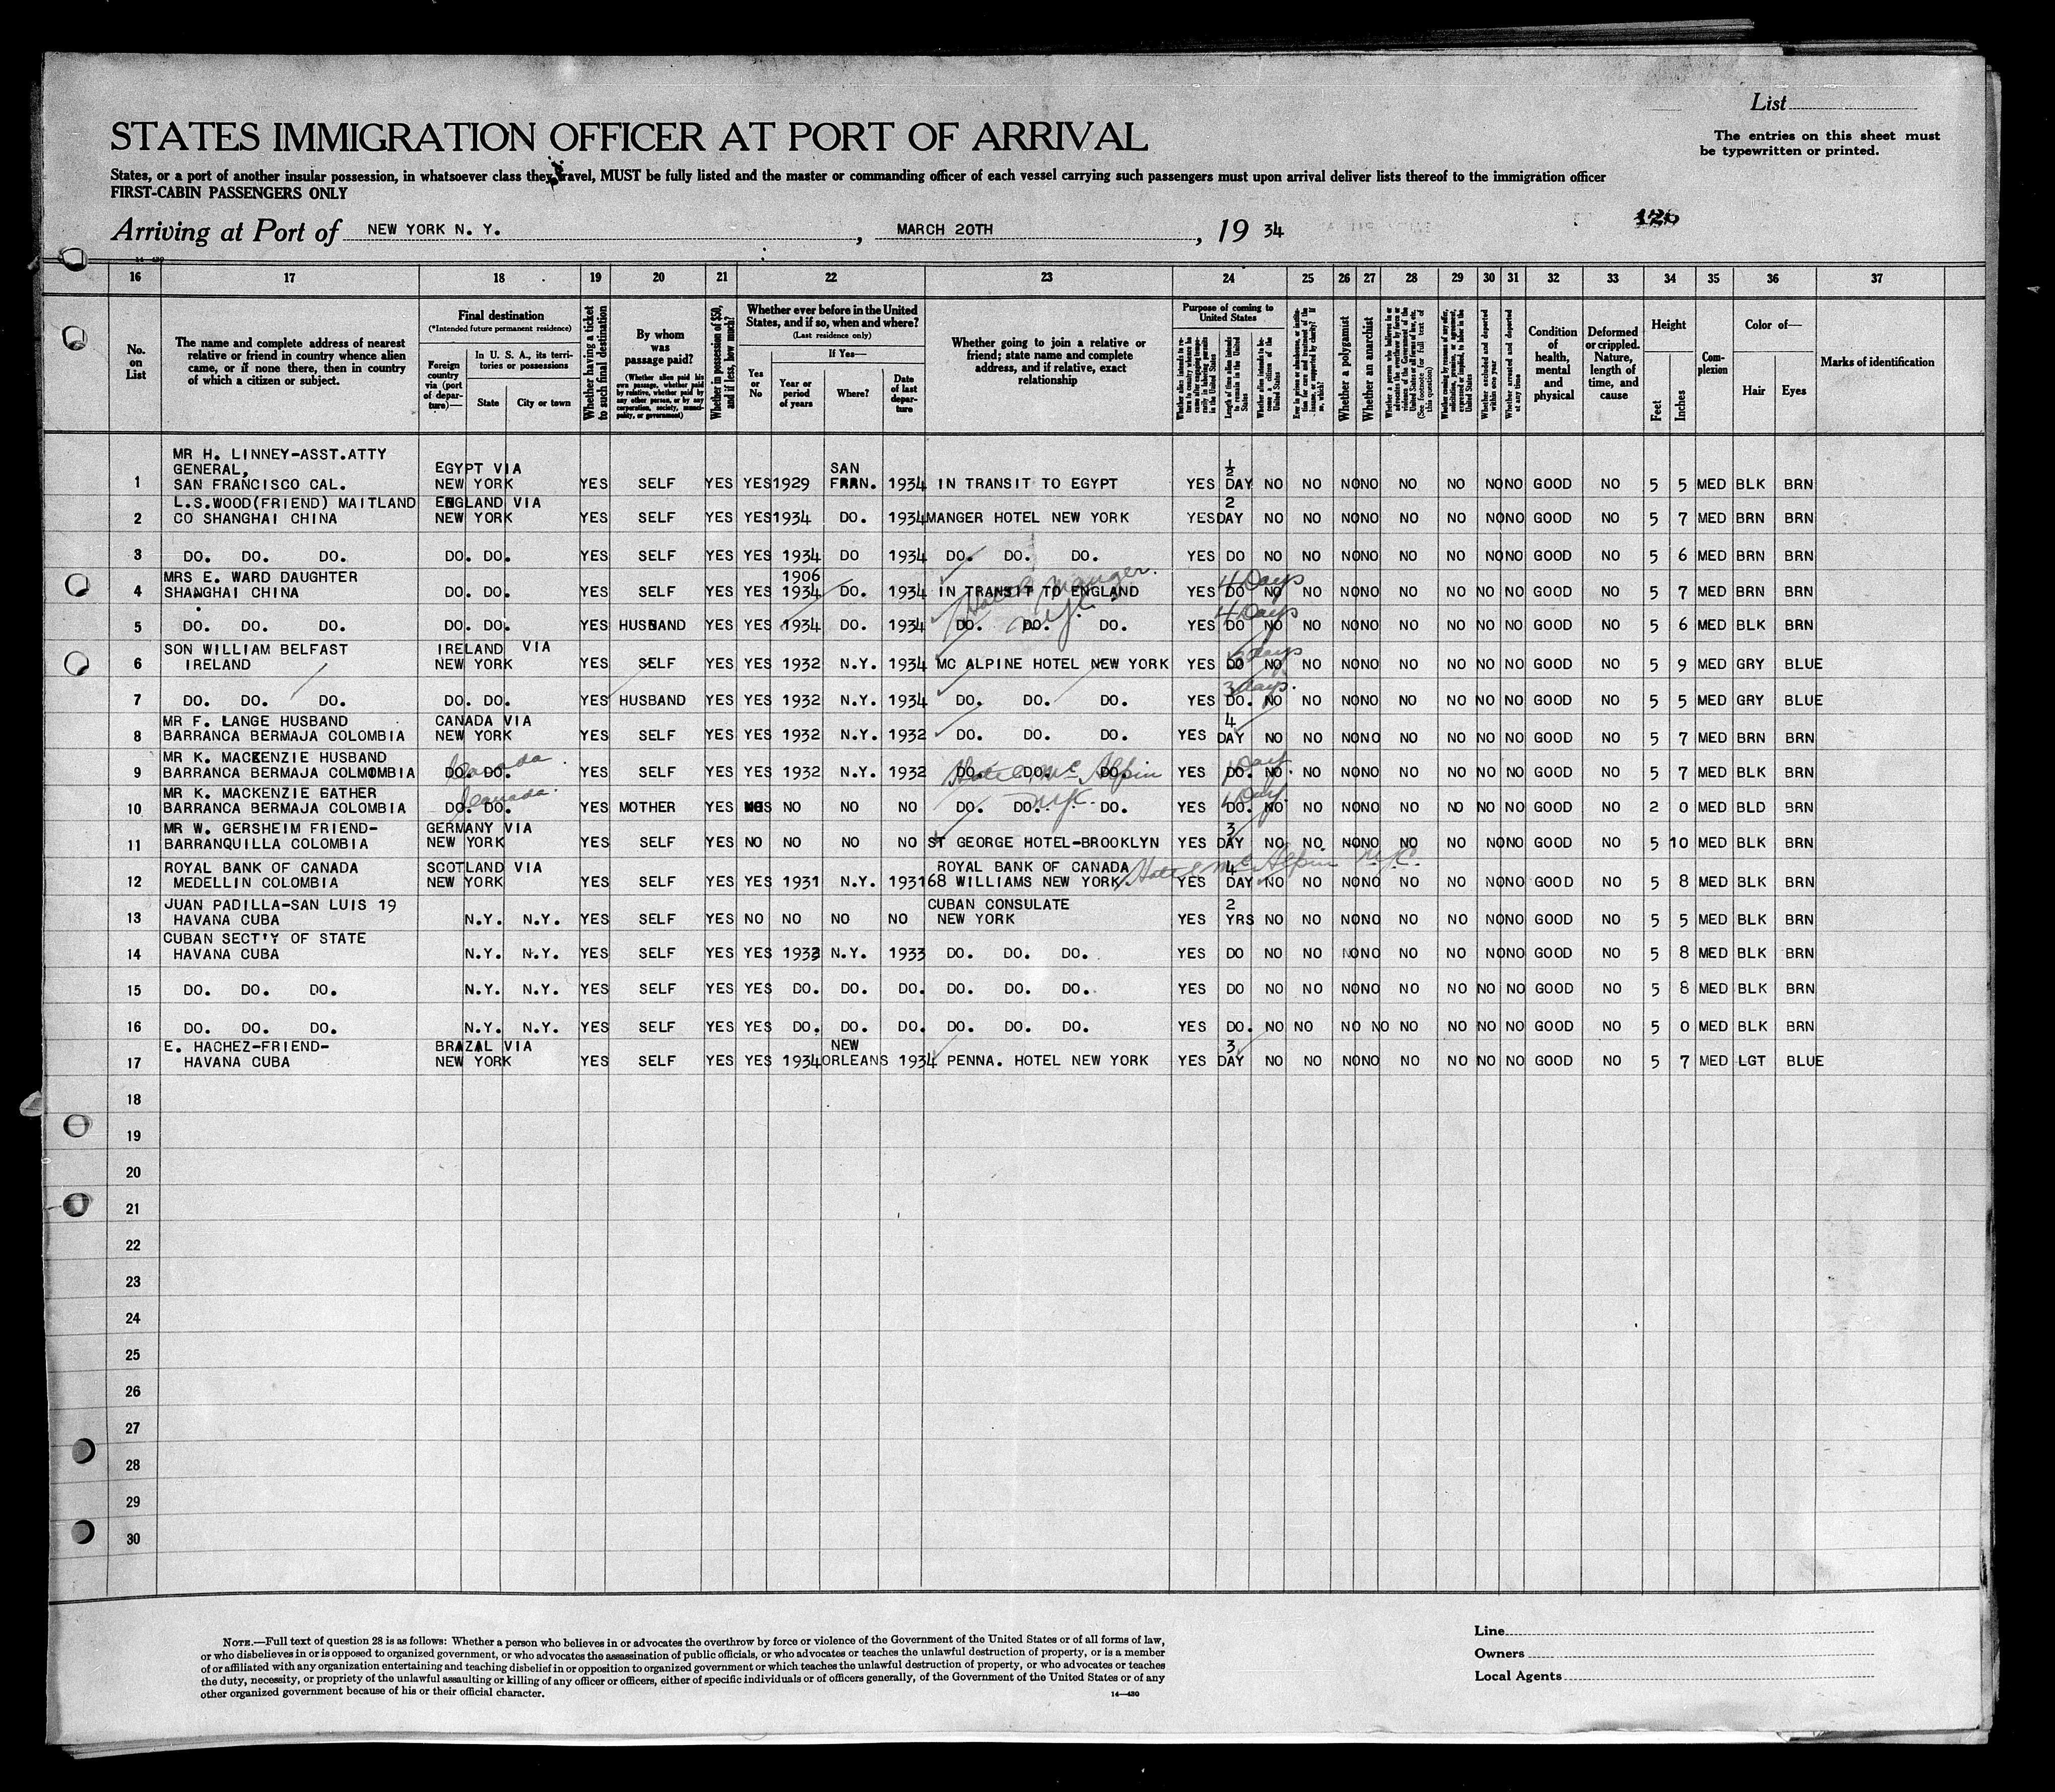 List
STATES IMMIGRATION OFFICER AT PORT OF ARRIVAL
The entries on this sheet must
be typewritten or printed.
States, or a port of another insular possession, in whatsoever class they travel, MUST be fully listed and the master or commanding officer of each vessel carrying such passengers must upon arrival deliver lists thereof to the immigration officer
FIRST-CABIN PASSENGERS ONLY
Arriving at Port of NEW YORK N. Y. , MARCH 20TH , 19 34
126
14—430
16 17 18 19 20 21 22 23 24 25 26 27 28 29 30 31 32 33 34 35 36 37
No.
on
List
The name and complete address of nearest
relative or friend in country whence alien
came, or if none there, then in country
of which a citizen or subject.
Final destination
(*Intended future permanent residence)
Foreign
country
via (port
of depar-
ture)—
In U. S. A., its terri-
tories or possessions
State
City or town
Whether having a ticket
to such final destination
By whom
was
passage paid?
(Whether alien paid his
own passage, whether paid
by relative, whether paid by
any other person, or by any
corporation, society, munici-
pality, or government)
Whether in possession of $50,
and if less, how much?
Whether ever before in the United
States, and if so, when and where?
(Last residence only)
Yes
or
No
If Yes—
Year or
period
of years
Where?
Date
of last
depar-
ture
Whether going to join a relative or
friend; state name and complete
address, and if relative, exact
relationship
Purpose of coming to
United States
Length of time alien intends
to remain in the United
States
Whether alien intends to be-
come a citizen of the
United States
Whether a polygamist
Whether an anarchist
Whether excluded and deported
within one year
Whether arrested and deported
at any time
Condition
of
health,
mental
and
physical
Deformed
or crippled.
Nature,
length of
time, and
cause
Height
Feet
Inches
Com-
plexion
Color of—
Hair
Eyes
Marks of identification
MR H. LINNEY-ASST.ATTY
GENERAL, EGYPT VIA SAN ½
1 SAN FRANCISCO CAL. NEW YORK YES SELF YES YES 1929 FRAN. 1934 IN TRANSIT TO EGYPT YES DAY NO NO NO NO NO NO NO NO GOOD NO 5 5 MED BLK BRN
L.S.WOOD(FRIEND) MAITLAND ENGLAND VIA 2
2 CO SHANGHAI CHINA NEW YORK YES SELF YES YES 1934 DO. 1934 MANGER HOTEL NEW YORK YES DAY NO NO NO NO NO NO NO NO GOOD NO 5 7 MED BRN BRN
3 DO. DO. DO. DO. DO. YES SELF YES YES 1934 DO 1934 DO. DO. DO. YES DO NO NO NO NO NO NO NO NO GOOD NO 5 6 MED BRN BRN
MRS E. WARD DAUGHTER 1906 Hotel Manger. 4 Days
4 SHANGHAI CHINA DO. DO. YES SELF YES YES 1934 DO. 1934 IN TRANSIT TO ENGLAND YES DO NO NO NO NO NO NO NO NO GOOD NO 5 7 MED BRN BRN
N.Y.C. 4 Days
5 DO. DO. DO. DO. DO. YES HUSBAND YES YES 1934 DO. 1934 DO. DO. DO. YES DO NO NO NO NO NO NO NO NO GOOD NO 5 6 MED BLK BRN
SON WILLIAM BELFAST IRELAND VIA days
6 IRELAND NEW YORK YES SELF YES YES 1932 N.Y. 1934 MC ALPINE HOTEL NEW YORK YES DO NO NO NO NO NO NO NO NO GOOD NO 5 9 MED GRY BLUE
3 days.
7 DO. DO. DO. DO. DO. YES HUSBAND YES YES 1932 N.Y. 1934 DO. DO. DO. YES DO. NO NO NO NO NO NO NO NO GOOD NO 5 5 MED GRY BLUE
MR F. LANGE HUSBAND CANADA VIA 4
8 BARRANCA BERMAJA COLOMBIA NEW YORK YES SELF YES YES 1932 N.Y. 1932 DO. DO. DO. YES DAY NO NO NO NO NO NO NO NO GOOD NO 5 7 MED BRN BRN
MR K. MACKENZIE HUSBAND Canada. Hotel Mc Alpin 1 Day
9 BARRANCA BERMAJA COLMOMBIA DO. DO. YES SELF YES YES 1932 N.Y. 1932 DO. DO. DO. YES DO. NO NO NO NO NO NO NO NO GOOD NO 5 7 MED BLK BRN
MR K. MACKENZIE GATHER Canada. N.Y.C. Day
10 BARRANCA BERMAJA COLOMBIA DO. DO. YES MOTHER YES NO NO NO DO. DO. DO. YES DO. NO NO NO NO NO NO NO NO GOOD NO 2 0 MED BLD BRN
MR W. GERSHEIM FRIEND- GERMANY VIA 3
11 BARRANQUILLA COLOMBIA NEW YORK YES SELF YES NO NO NO NO ST GEORGE HOTEL-BROOKLYN YES DAY NO NO NO NO NO NO NO NO GOOD NO 5 10 MED BLK BRN
ROYAL BANK OF CANADA SCOTLAND VIA ROYAL BANK OF CANADA Hotel Mc Alpin N.Y.C. 4
12 MEDELLIN COLOMBIA NEW YORK YES SELF YES YES 1931 N.Y. 1931 68 WILLIAMS NEW YORK YES DAY NO NO NO NO NO NO NO NO GOOD NO 5 8 MED BLK BRN
JUAN PADILLA-SAN LUIS 19 CUBAN CONSULATE 2
13 HAVANA CUBA N.Y. N.Y. YES SELF YES NO NO NO NO NEW YORK YES YRS NO NO NO NO NO NO NO NO GOOD NO 5 5 MED BLK BRN
CUBAN SECT'Y OF STATE
14 HAVANA CUBA N.Y. N.Y. YES SELF YES YES 1933 N.Y. 1933 DO. DO. DO. YES DO NO NO NO NO NO NO NO NO GOOD NO 5 8 MED BLK BRN
15 DO. DO. DO. N.Y. N.Y. YES SELF YES YES DO. DO. DO. DO. DO. DO. YES DO NO NO NO NO NO NO NO NO GOOD NO 5 8 MED BLK BRN
16 DO. DO. DO. N.Y. N.Y. YES SELF YES YES DO. DO. DO. DO. DO. DO. YES DO. NO NO NO NO NO NO NO NO GOOD NO 5 0 MED BLK BRN
E. HACHEZ-FRIEND- BRAZAL VIA NEW 3
17 HAVANA CUBA NEW YORK YES SELF YES YES 1934 ORLEANS 1934 PENNA. HOTEL NEW YORK YES DAY NO NO NO NO NO NO NO NO GOOD NO 5 7 MED LGT BLUE
18
19
20
21
22
23
24
25
26
27
28
29
30
NOTE.—Full text of question 28 is as follows: Whether a person who believes in or advocates the overthrow by force or violence of the Government of the United States or of all forms of law,
or who disbelieves in or is opposed to organized government, or who advocates the assassination of public officials, or who advocates or teaches the unlawful destruction of property, or is a member
of or affiliated with any organization entertaining and teaching disbelief in or opposition to organized government or which teaches the unlawful destruction of property, or who advocates or teaches
the duty, necessity, or propriety of the unlawful assaulting or killing of any officer or officers, either of specific individuals or of officers generally, of the Government of the United States or of any
other organized government because of his or their official character.
14—430
Line
Owners
Local Agents